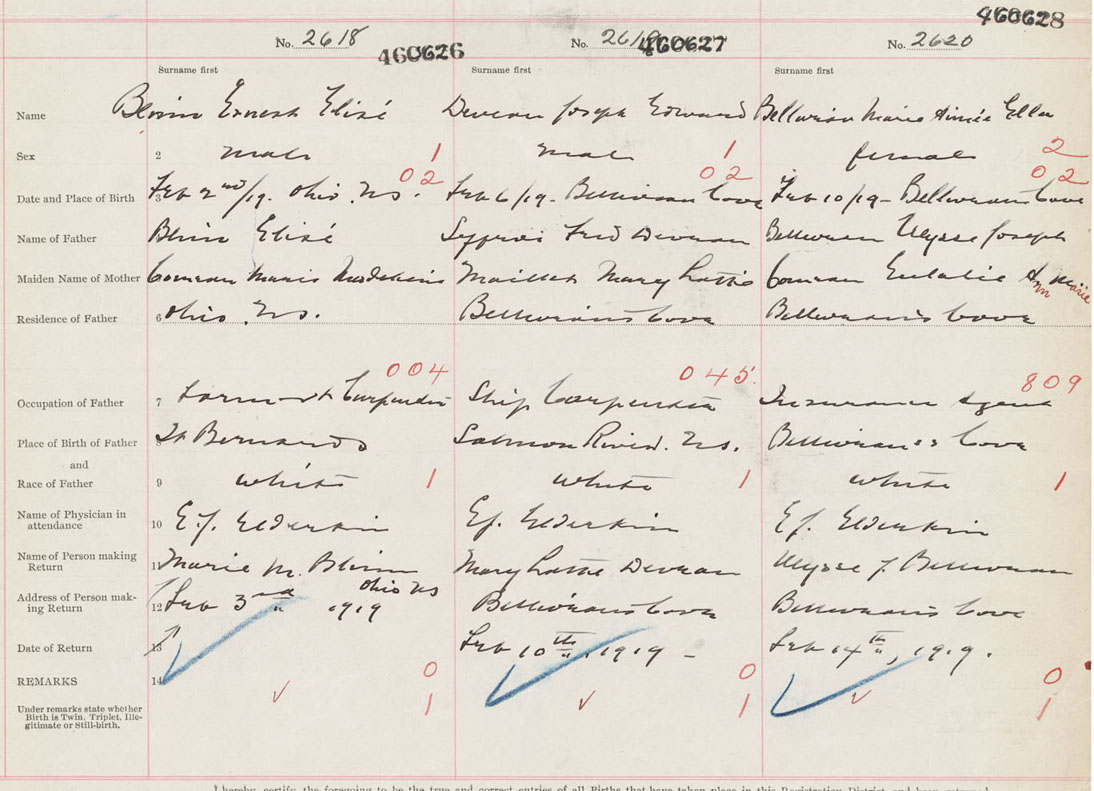 460628
No. 2618 460626 No. 2619 460627 No. 2620
Surname first Surname first Surname first
Name Ernest Elisé Deveau Joseph Edward Belliveau Marie Aimée Ella
Sex 2 male 1 male 1 female 2
02 02 02
Date and Place of Birth 3 Feb 2nd/19. Ohio. NS. Feb 6/19- Belliveaus Cove Feb 10/19- Belliveaus Cove
Name of Father Elisé Fred Deveau Belliveau Ulysse Joseph
Maiden Name of Mother Comeau Marie Maillet Mary Comeau Eulalie Ann Marie
Residence of Father 6 Ohio. NS. Belliveau's Cove Belliveau's Cove
004 045 809
Occupation of Father 7 Farmer & Carpenter Ship Carpenter Insurance Agent
Place of Birth of Father 8 St Bernards Salmon River. NS. Belliveau's Cove
and
Race of Father 9 white 1 white 1 white 1
Name of Physician in
attendance 10 E.J. Elderkin EJ. Elderkin EJ. Elderkin
Name of Person making
Return 11 Marie M. Mary Deveau Ulysse J. Belliveau
Address of Person mak-
ing Return 12 Feb 3rd 1919 Ohio NS Belliveau's Cove Belliveau's Cove
Date of Return 13 Feb 10th, 1919 - Feb 14th, 1919.
REMARKS 14 0 0 0
Under remarks state whether
Birth is Twin, Triplet, Ille-
gitimate or Still-birth. 1 1 1
I hereby certify the foregoing to be the true and correct entries of all Births that have taken place in this Registration District and been returned